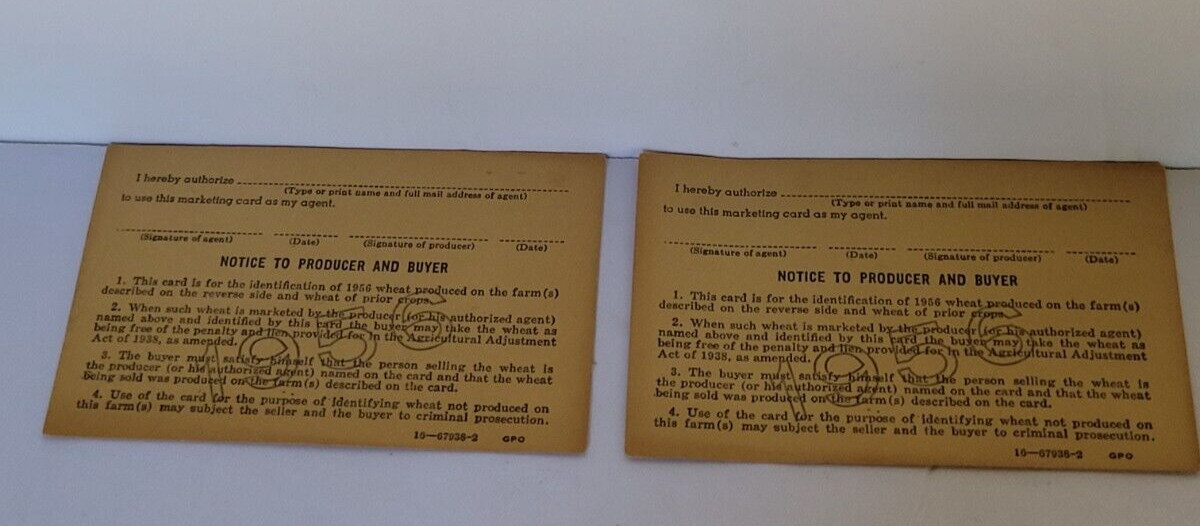 I hereby authorize
(Type or print name and full mail address of agent)
to use this marketing card as my agent.
(Signature of agent) (Date) (Signature of producer) (Date)
NOTICE TO PRODUCER AND BUYER
1. This card is for the identification of 1956 wheat produced on the farm(s)
described on the reverse side and wheat of prior crops.
2. When such wheat is marketed by the producer (or his authorized agent)
named above and identified by this card the buyer may take the wheat as
being free of the penalty and lien provided for in the Agricultural Adjustment
Act of 1938, as amended.
3. The buyer must satisfy himself that the person selling the wheat is
the producer (or his authorized agent) named on the card and that the wheat
being sold was produced on the farm(s) described on the card.
4. Use of the card for the purpose of identifying wheat not produced on
this farm(s) may subject the seller and the buyer to criminal prosecution.
16—67938-2 GPO
1956
I hereby authorize
(Type or print name and full mail address of agent)
to use this marketing card as my agent.
(Signature of agent) (Date) (Signature of producer) (Date)
NOTICE TO PRODUCER AND BUYER
1. This card is for the identification of 1956 wheat produced on the farm(s)
described on the reverse side and wheat of prior crops.
2. When such wheat is marketed by the producer (or his authorized agent)
named above and identified by this card the buyer may take the wheat as
being free of the penalty and lien provided for in the Agricultural Adjustment
Act of 1938, as amended.
3. The buyer must satisfy himself that the person selling the wheat is
the producer (or his authorized agent) named on the card and that the wheat
being sold was produced on the farm(s) described on the card.
4. Use of the card for the purpose of identifying wheat not produced on
this farm(s) may subject the seller and the buyer to criminal prosecution.
16—67938-2 GPO
1956